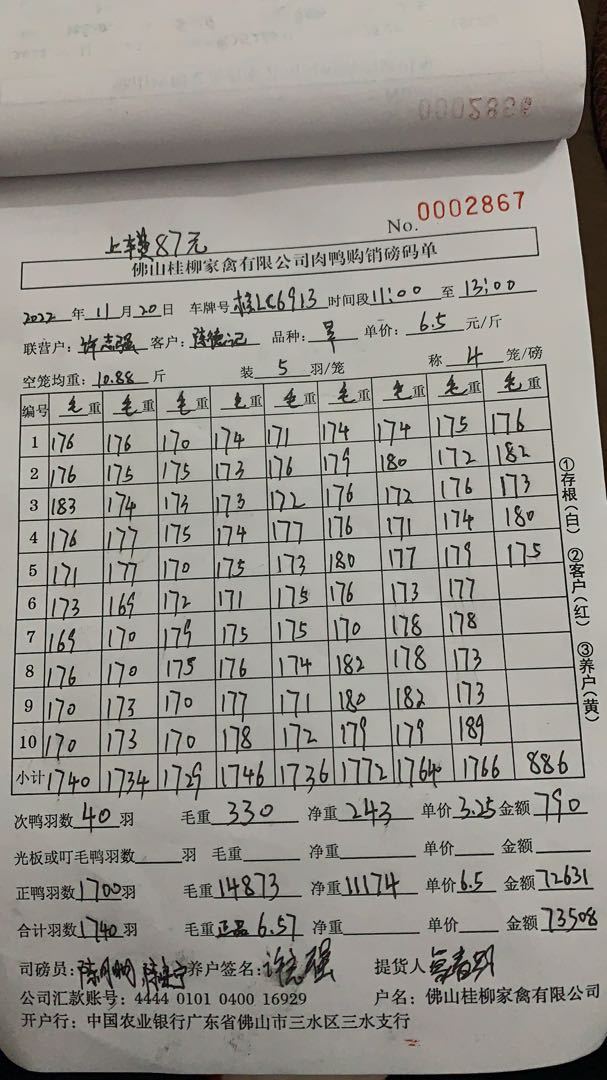 0002866
No. 0002867
上车费87元
佛山桂柳家禽有限公司肉鸭购销磅码单
2022 年 11 月 20 日 车牌号 桂LC6913 时间段 11:00 至 13:00
联营户: 许志强 客户: 陈德记 品种: 旱 单价: 6.5 元/斤
空笼均重: 10.88 斤 装 5 羽/笼 称 4 笼/磅
编号 毛重 毛重 毛重 毛重 毛重 毛重 毛重 毛重 毛重
1 176 176 170 174 171 174 174 175 176
2 176 175 175 173 176 179 180 172 182
3 183 174 173 173 172 176 172 176 173
4 176 177 175 174 177 176 171 174 180
5 171 177 170 175 173 180 177 179 175
6 173 169 172 171 175 176 173 177
7 169 170 179 175 175 170 178 178
8 176 170 175 176 174 182 178 173
9 170 173 170 177 171 180 182 173
10 170 173 170 178 172 179 179 189
小计 1740 1734 1729 1746 1736 1772 1764 1766 886
①存根(白) ②客户(红) ③养户(黄)
次鸭羽数 40 羽 毛重 330 净重 243 单价 3.25 金额 790
光板或叮毛鸭羽数 羽 毛重 净重 单价 金额
正鸭羽数 1700 羽 毛重 14873 净重 11174 单价 6.5 金额 72631
合计羽数 1740 羽 毛重 正品 6.57 净重 单价 金额 73508
司磅员: 养户签名: 许志强 提货人
公司汇款账号: 4444 0101 0400 16929 户名: 佛山桂柳家禽有限公司
开户行: 中国农业银行广东省佛山市三水区三水支行